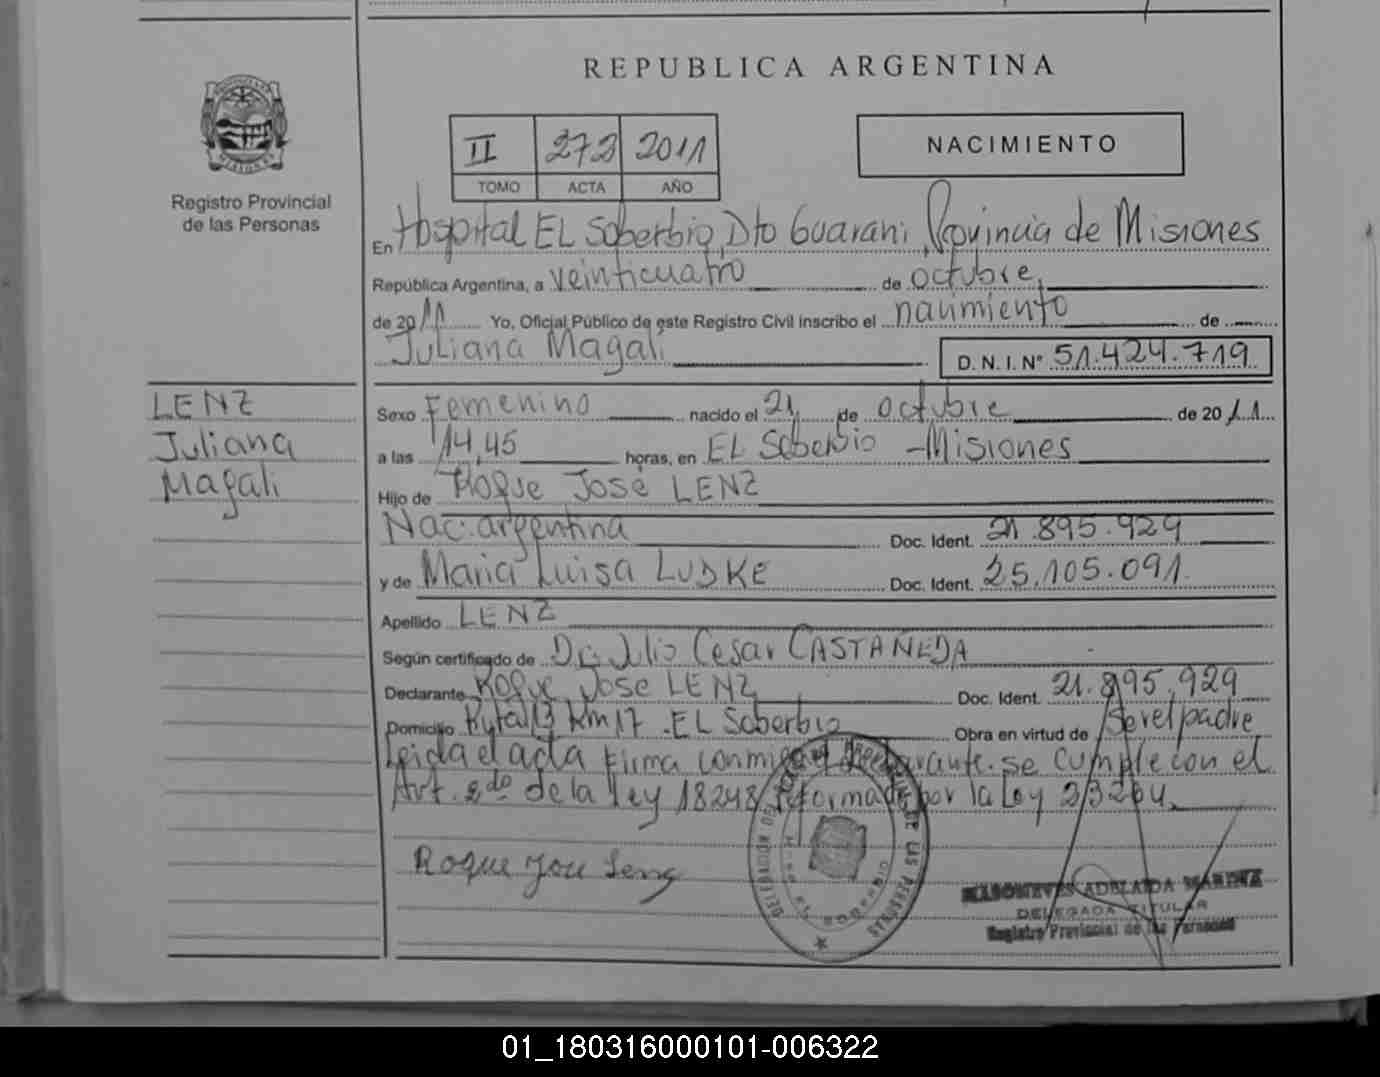 REPUBLICA ARGENTINA
II 272 2011
TOMO ACTA AÑO
NACIMIENTO
Registro Provincial
de las Personas
En Hospital EL Soberbio, Dto Guarani, Provincia de Misiones
República Argentina, a veinticuatro de octubre,
de 2011 Yo, Oficial Público de este Registro Civil inscribo el nacimiento de
Juliana Magali D. N. I. Nº 51.424.719
LENZ
Juliana
Magali
Sexo Femenino nacido el 21 de octubre de 2011
a las 14,45 horas, en EL Soberbio - Misiones
Hijo de Roque José LENZ
Nac. argentina Doc. Ident. 21.895.929
y de Maria Luisa LUDKE Doc. Ident. 25.105.091
Apellido LENZ
Según certificado de Dr. Julio Cesar CASTAÑEDA
Declarante Roque Jose LENZ Doc. Ident. 21.895.929
Domicilio Ruta 13 Km 17. EL Soberbio Obra en virtud de Ser el padre
Leida el acta Firma conmigo el Declarante. se cumple con el
Art. 2do de la Ley 18248 reformado por la Ley 23264
Roque
DELEGADA TITULAR
Registro Provincial de las Personas
01_180316000101-006322